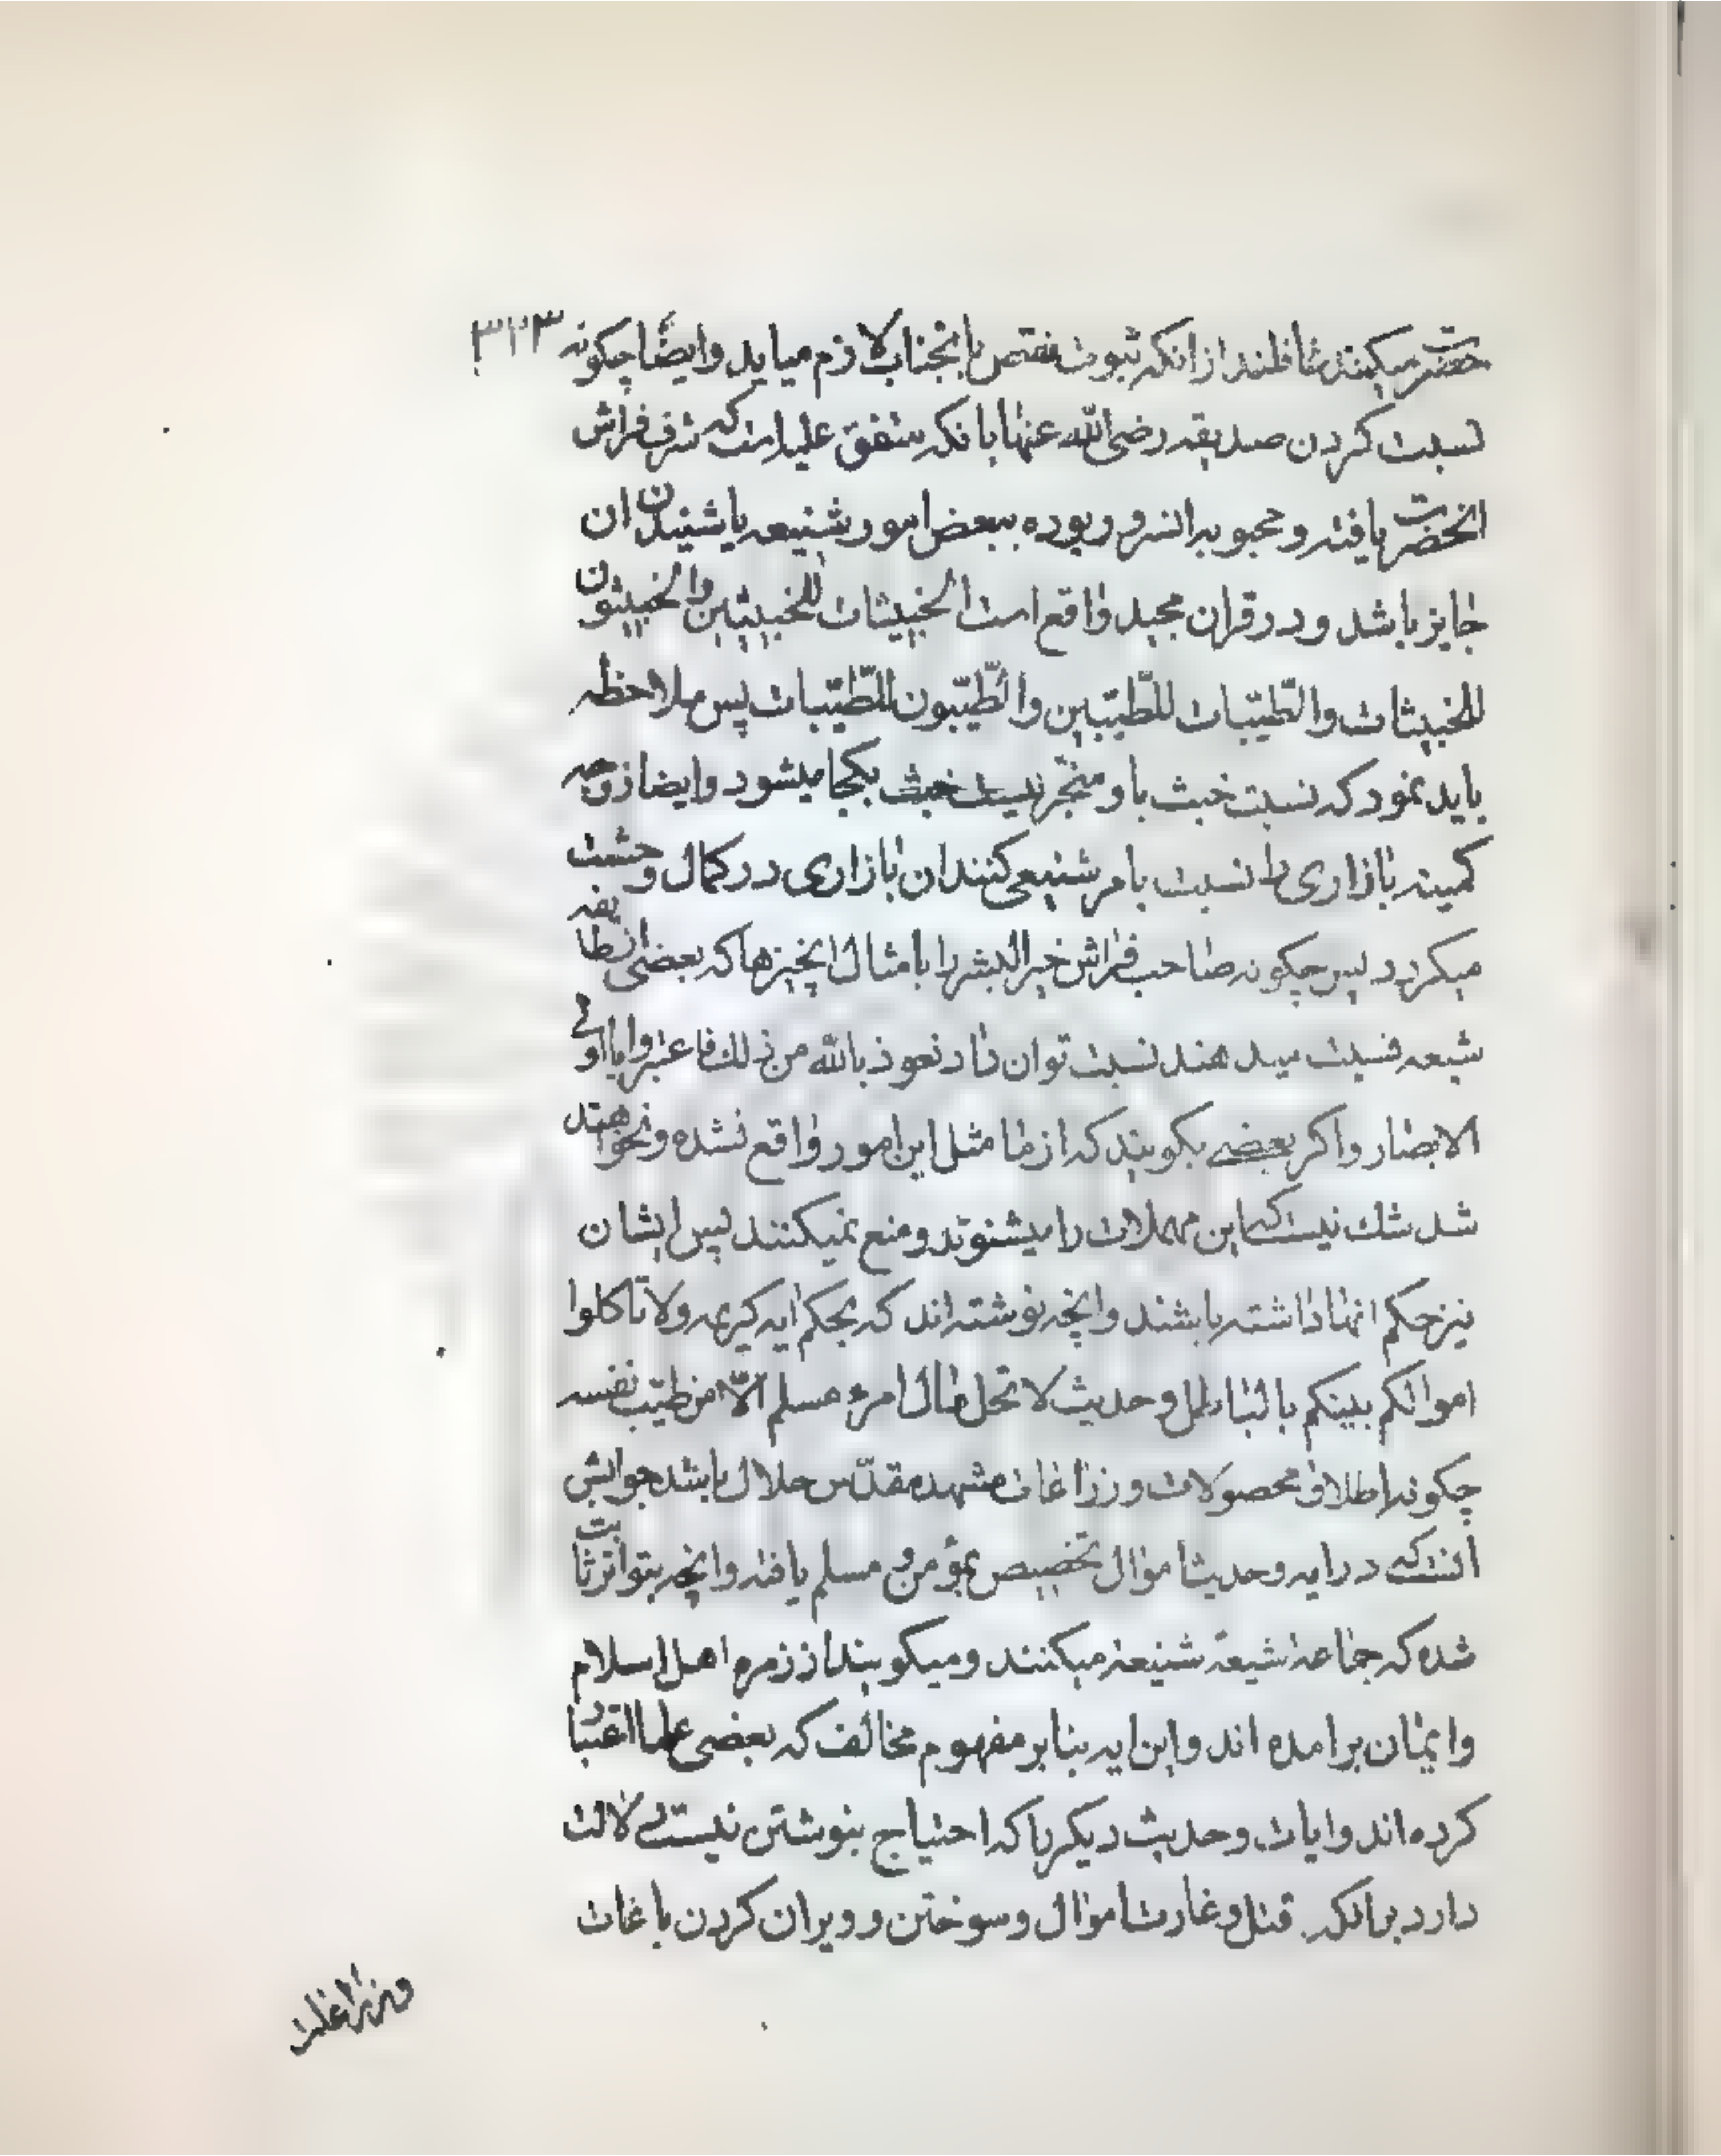 حضرت میکنند غافلند از انکه ثبوت نقص بانجناب لازم میاید وایضاً چکونه ۳۲۳
نسبت کردن صدیقه رضی الله عنها بانکه متفق علیه است که شرف فراش
انحضرت یافته و محبوبه انسرور بوده ببعض امور شنیعه یا شنیدن ان
جایز باشد و در قران مجید واقع است الخبیثات للخبیثین والخبیثون
للخبیثات والطّیّبات للطّیّبین والطّیّبون للطّیّبات پس ملاحظه
باید نمود که نسبت خبث باو منجّر نسبت خبث بکجا میشود وایضا زوجه
کمینه بازاری را نسبت بامر شنیعی کنند ان بازاری در کمال وحشت
میکردد پس چکونه صاحب فراش خیر البشر را بامثال اینچیزها که بعضی از طایفه
شیعه نسبت میدهند نسبت توان داد نعوذ بالله من ذلك فاعتبروا یا اولی
الابصار واکر بعضی بکویند که از ما مثل این امور واقع نشده ونخواهد
شد شك نیست که این مهملات را میشنوند و منع نمیکنند پس ایشان
نیز حکم انها داشته باشند وانچه نوشته اند که بحکم ایه کریمه ولا تاکلوا
اموالکم بینکم بالباطل و حدیث لا تحل مال امرء مسلم الّا من طیّب نفسه
چکونه اطلاق محصولات وزراعات مشهد مقدّس حلال باشد جوابش
انست که در ایه وحدیث اموال تخصیص بمؤمن و مسلم یافته وانچه بتواتر ثابت
شده که جماعهٔ شیعهٔ شنیعه میکنند ومیکویند از زمره اهل اسلام
وایمان برامده اند واین ایه بنابر مفهوم مخالف که بعضی علما اعتبار
کرده اند وایات وحدیث دیکر باکه احتیاج بنوشتن نیست دلالت
دارد برانکه قتل وغارت اموال وسوختن و ویران کردن باغات
وزراعات